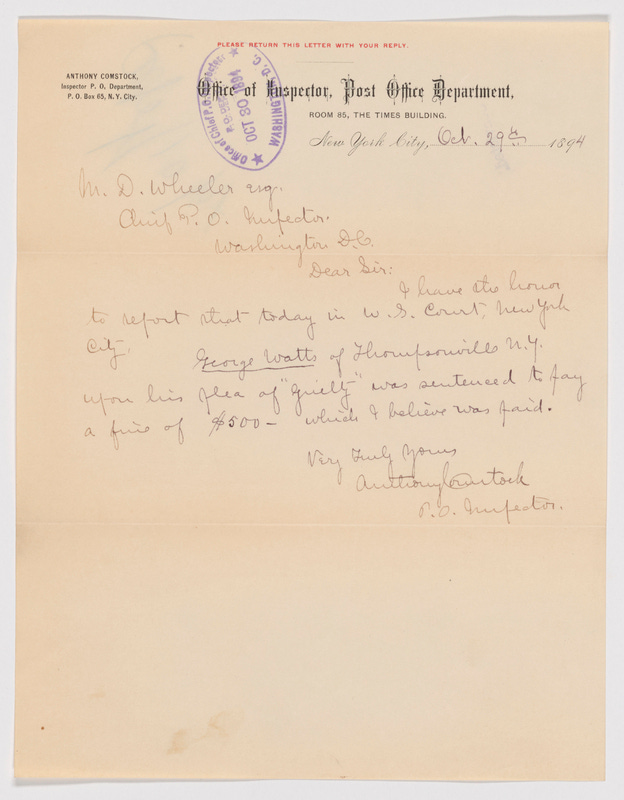 PLEASE RETURN THIS LETTER WITH YOUR REPLY.
ANTHONY COMSTOCK,
Inspector P. O. Department,
P. O. Box 65, N. Y. City.
Office of Inspector, Post Office Department,
ROOM 85, THE TIMES BUILDING.
Office of Chief P.O. Inspector
OCT 30 1894
WASHINGTON, D.C.
New York City, Oct. 29th 1894
M. D. Wheeler Esq.
Chief P. O. Inspector.
Washington D.C.
Dear Sir:
I have the honor
to report that today in U. S. Court, New York
City.
George Watts of Thompsonville N.Y.
upon his plea of "Guilty" was sentenced to pay
a fine of $500— which I believe was paid.
Very Truly Yours
Anthony Comstock
P. O. Inspector.